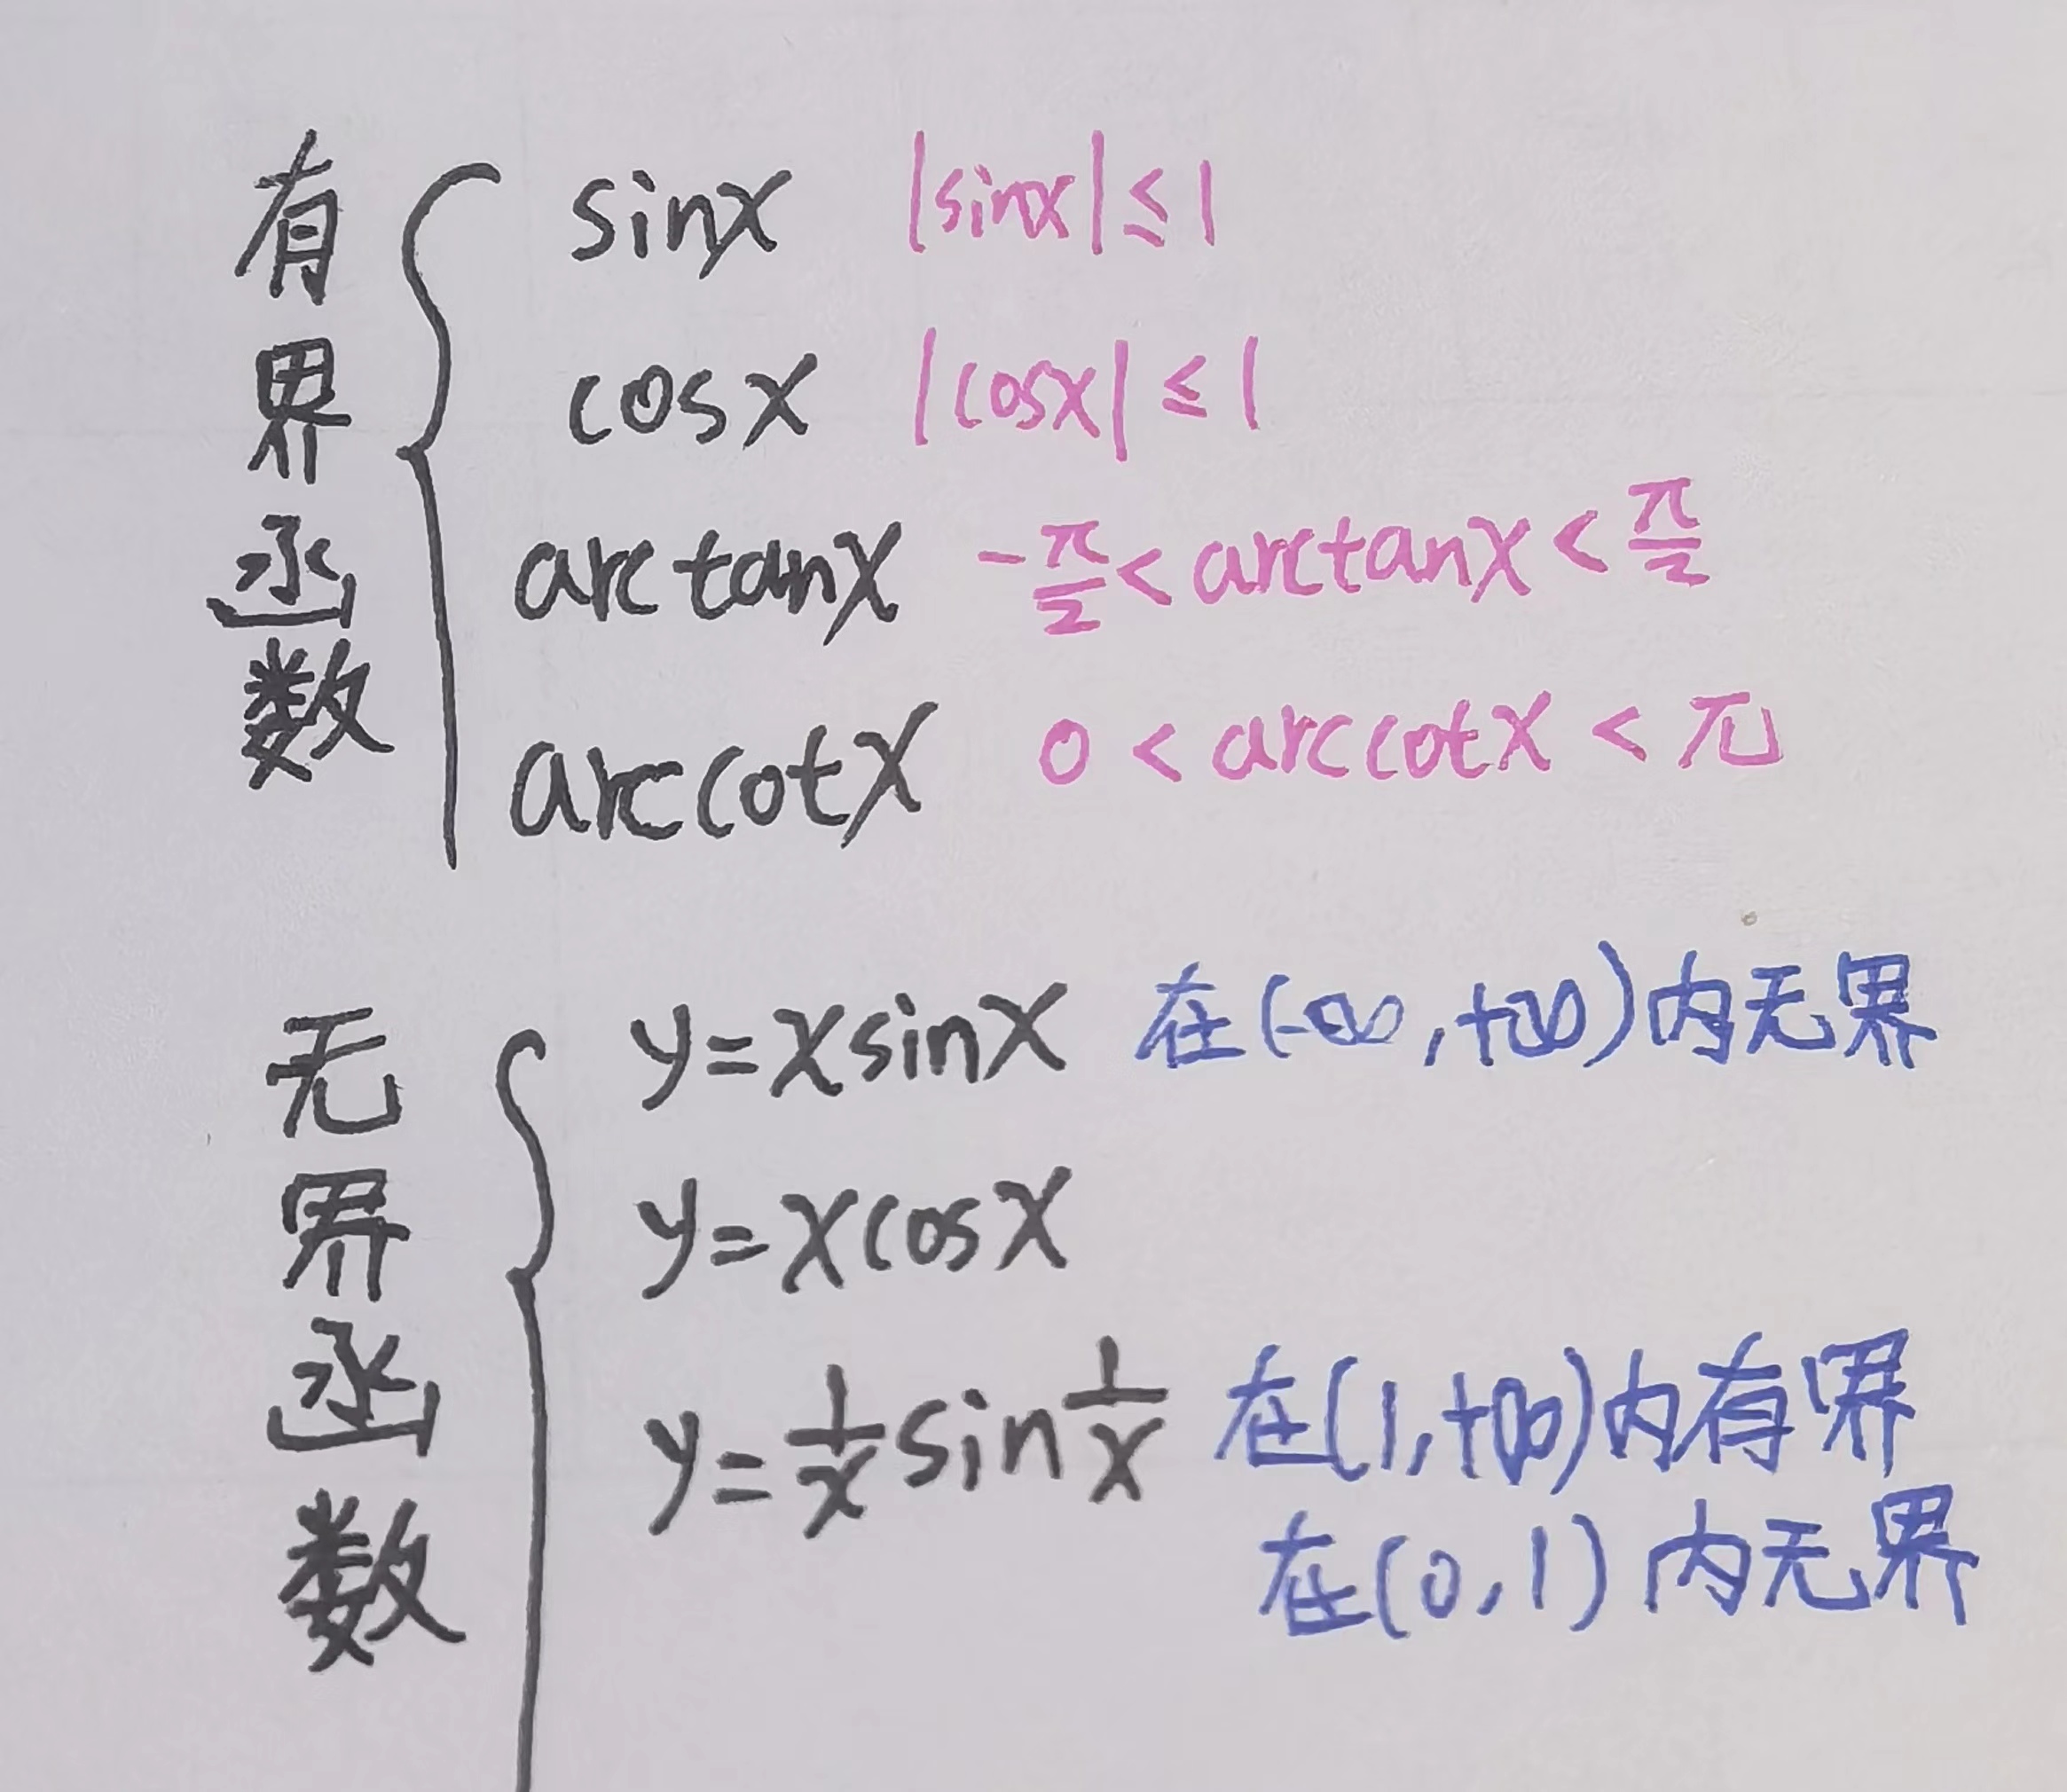 有界函数
sinx |sinx| ≤ 1
cosx |cosx| ≤ 1
arctanx -π/2 < arctanx < π/2
arccotx 0 < arccotx < π
无界函数
y=xsinx 在(-∞,+∞)内无界
y=xcosx
y=1/x sin 1/x 在(1,+∞)内有界
在(0,1)内无界